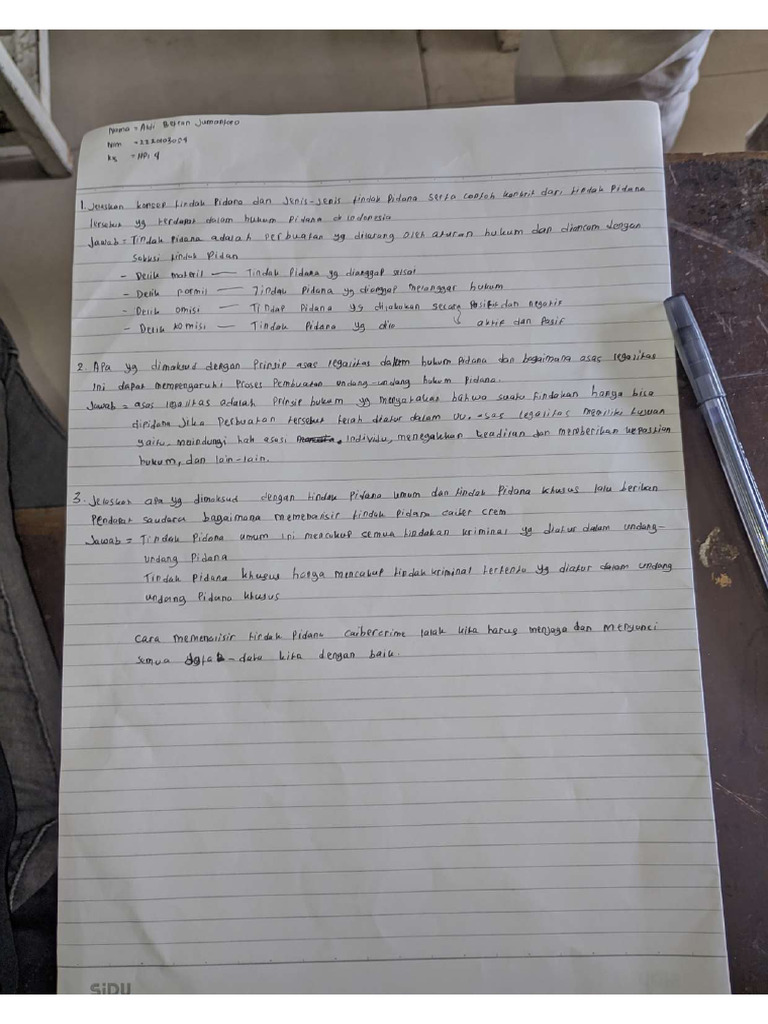 Nama = Abdi Betran Jumantoro
Nim = 2220103054
ks = HPI 4
1. Jelaskan konsep tindak Pidana dan Jenis-jenis tindak Pidana serta contoh konkrit dari tindak Pidana
tersebut yg terdapat dalam hukum Pidana di indonesia
Jawab = Tindak Pidana adalah perbuatan yg dilarang oleh aturan hukum dan diancam dengan
Saksi tindak Pidan
- Delik materil — Tindak Pidana yg dianggap selsai
- Delik formil — Tindak Pidana yg dianggap melanggar hukum
- Delik omisi — Tindap Pidana yg dilakukan secara Positif dan negatif
- Delik komisi — Tindak Pidana yg dio aktif dan Pasif
2. Apa yg dimaksud dengan Prinsip asas legalitas dalam hukum Pidana dan bagaimana asas legalitas
ini dapat mempengaruhi Proses Pembuatan undang-undang hukum Pidana.
Jawab = asas legalitas adalah Prinsip hukum yg menyatakan bahwa suatu tindakan hanya bisa
dipidana Jika Perbuatan tersebut telah diatur dalam UU. asas legalitas memiliki tujuan
yaitu, melindungi hak asasi individu, menegakkan keadilan dan memberikan kepastian
hukum, dan lain-lain.
3. Jelaskan apa yg dimaksud dengan tindak Pidana umum dan tindak Pidana khusus lalu berikan
Pendapat saudara bagaimana memenarisir tindak Pidana caiber crem
Jawab = Tindak Pidana umum ini mencakup semua tindakan kriminal yg diatur dalam undang-
undang Pidana
Tindak Pidana khusus hanya mencakup tindak kriminal tertentu yg diatur dalam undang
undang Pidana khusus
Cara memenarisir tindak Pidana caibercrime ialah kita harus menjaga dan menyunci
semua data-data kita dengan baik.
SiDU